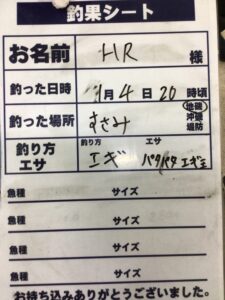 釣果シート
お名前 HR 様
釣った日時 月 4 日 20 時頃
釣った場所 すさみ 地磯 沖磯 堤防
釣り方 エサ 釣り方 エギ エサ パタパタ エギ王
魚種 サイズ
魚種 サイズ
魚種 サイズ
魚種 サイズ
お持ち込みありがとうございました。